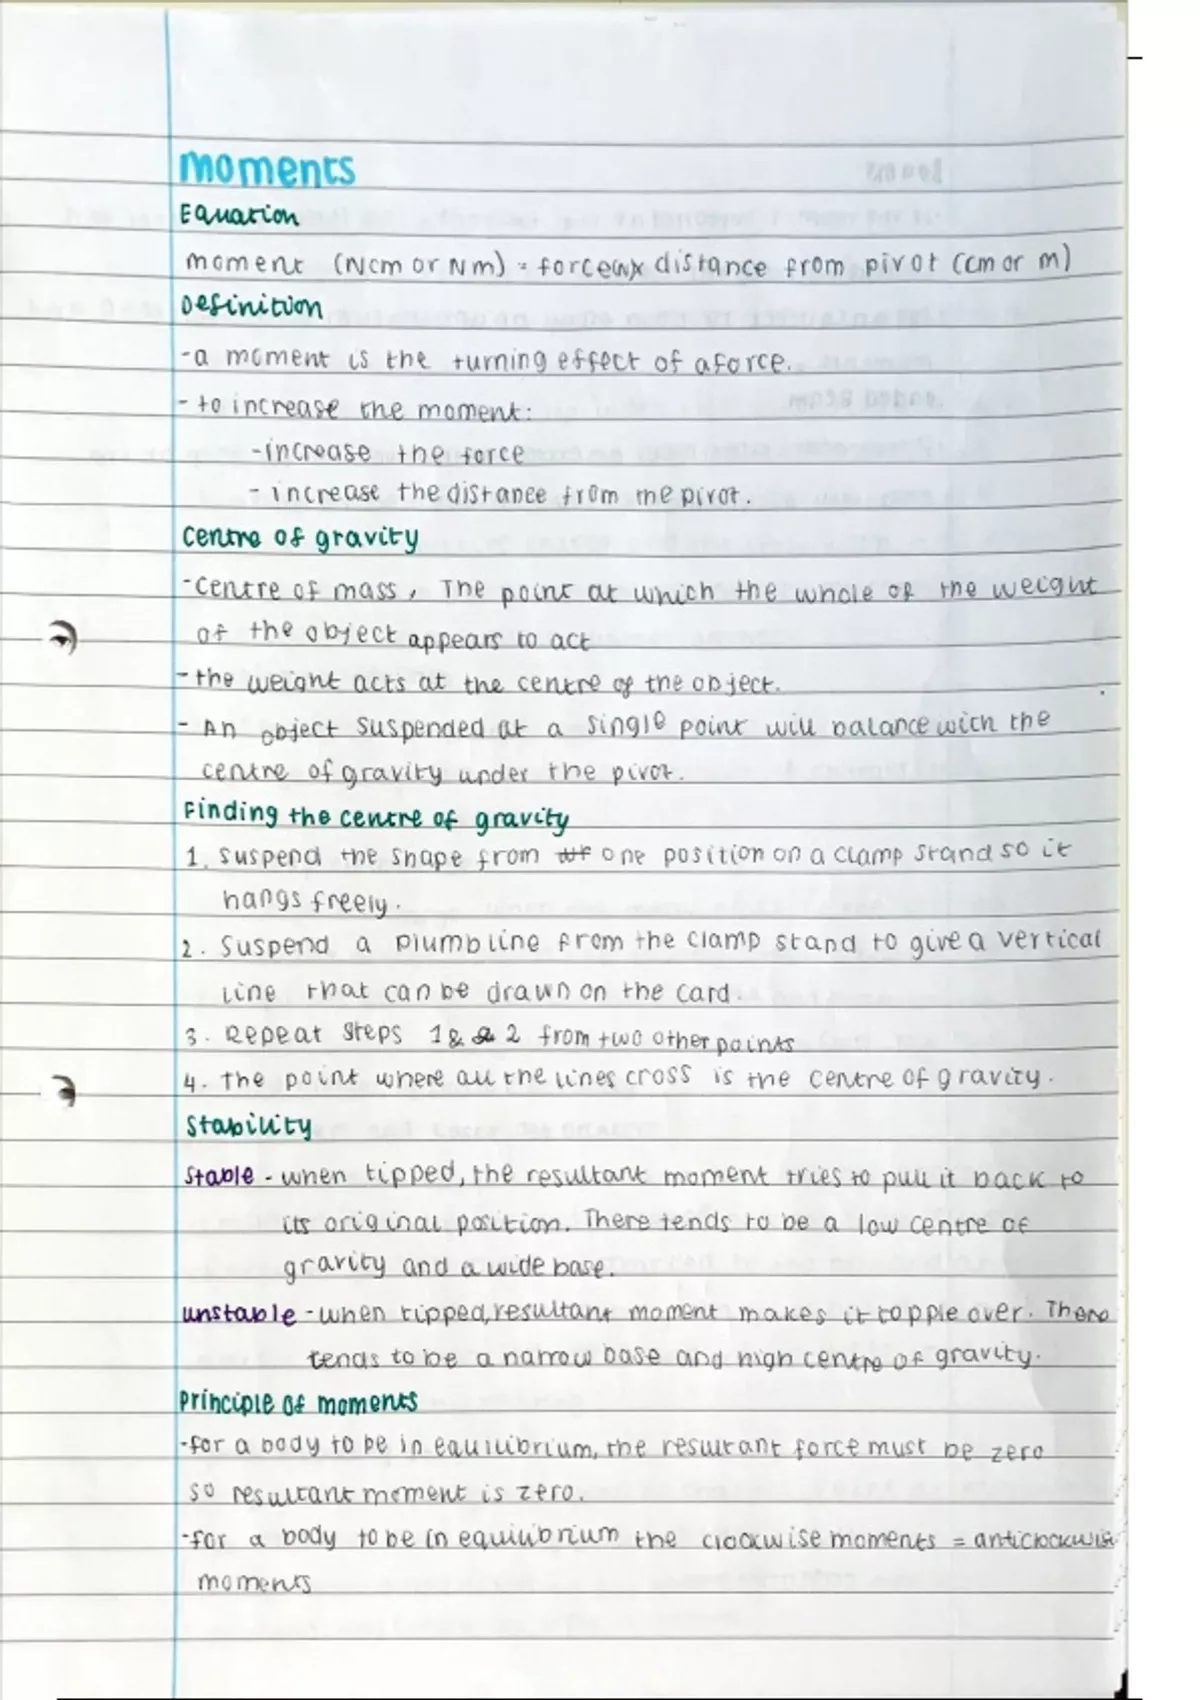 moments
Equation
moment (Ncm or Nm) = force(N)x distance from pivot (cm or m)
Definition
-a moment is the turning effect of a force.
- to increase the moment:
-increase the force
- increase the distance from the pivot.
Centre of gravity
-Centre of mass, The point at which the whole of the weight
of the object appears to act
- the weight acts at the centre of the object.
- An object suspended at a single point will balance with the
centre of gravity under the pivot.
Finding the centre of gravity
1. Suspend the shape from one position on a clamp stand so it
hangs freely.
2. Suspend a plumbline from the clamp stand to give a vertical
line that can be drawn on the card.
3. Repeat steps 1 & 2 from two other points
4. The point where all the lines cross is the centre of gravity.
Stability
Stable - when tipped, the resultant moment tries to pull it back to
its original position. There tends to be a low centre of
gravity and a wide base.
unstable - when tipped, resultant moment makes it topple over. There
tends to be a narrow base and high centre of gravity.
Principle of moments
-for a body to be in equilibrium, the resultant force must be zero
so resultant moment is zero.
-for a body to be in equilibrium the clockwise moments = anticlockwise
moments